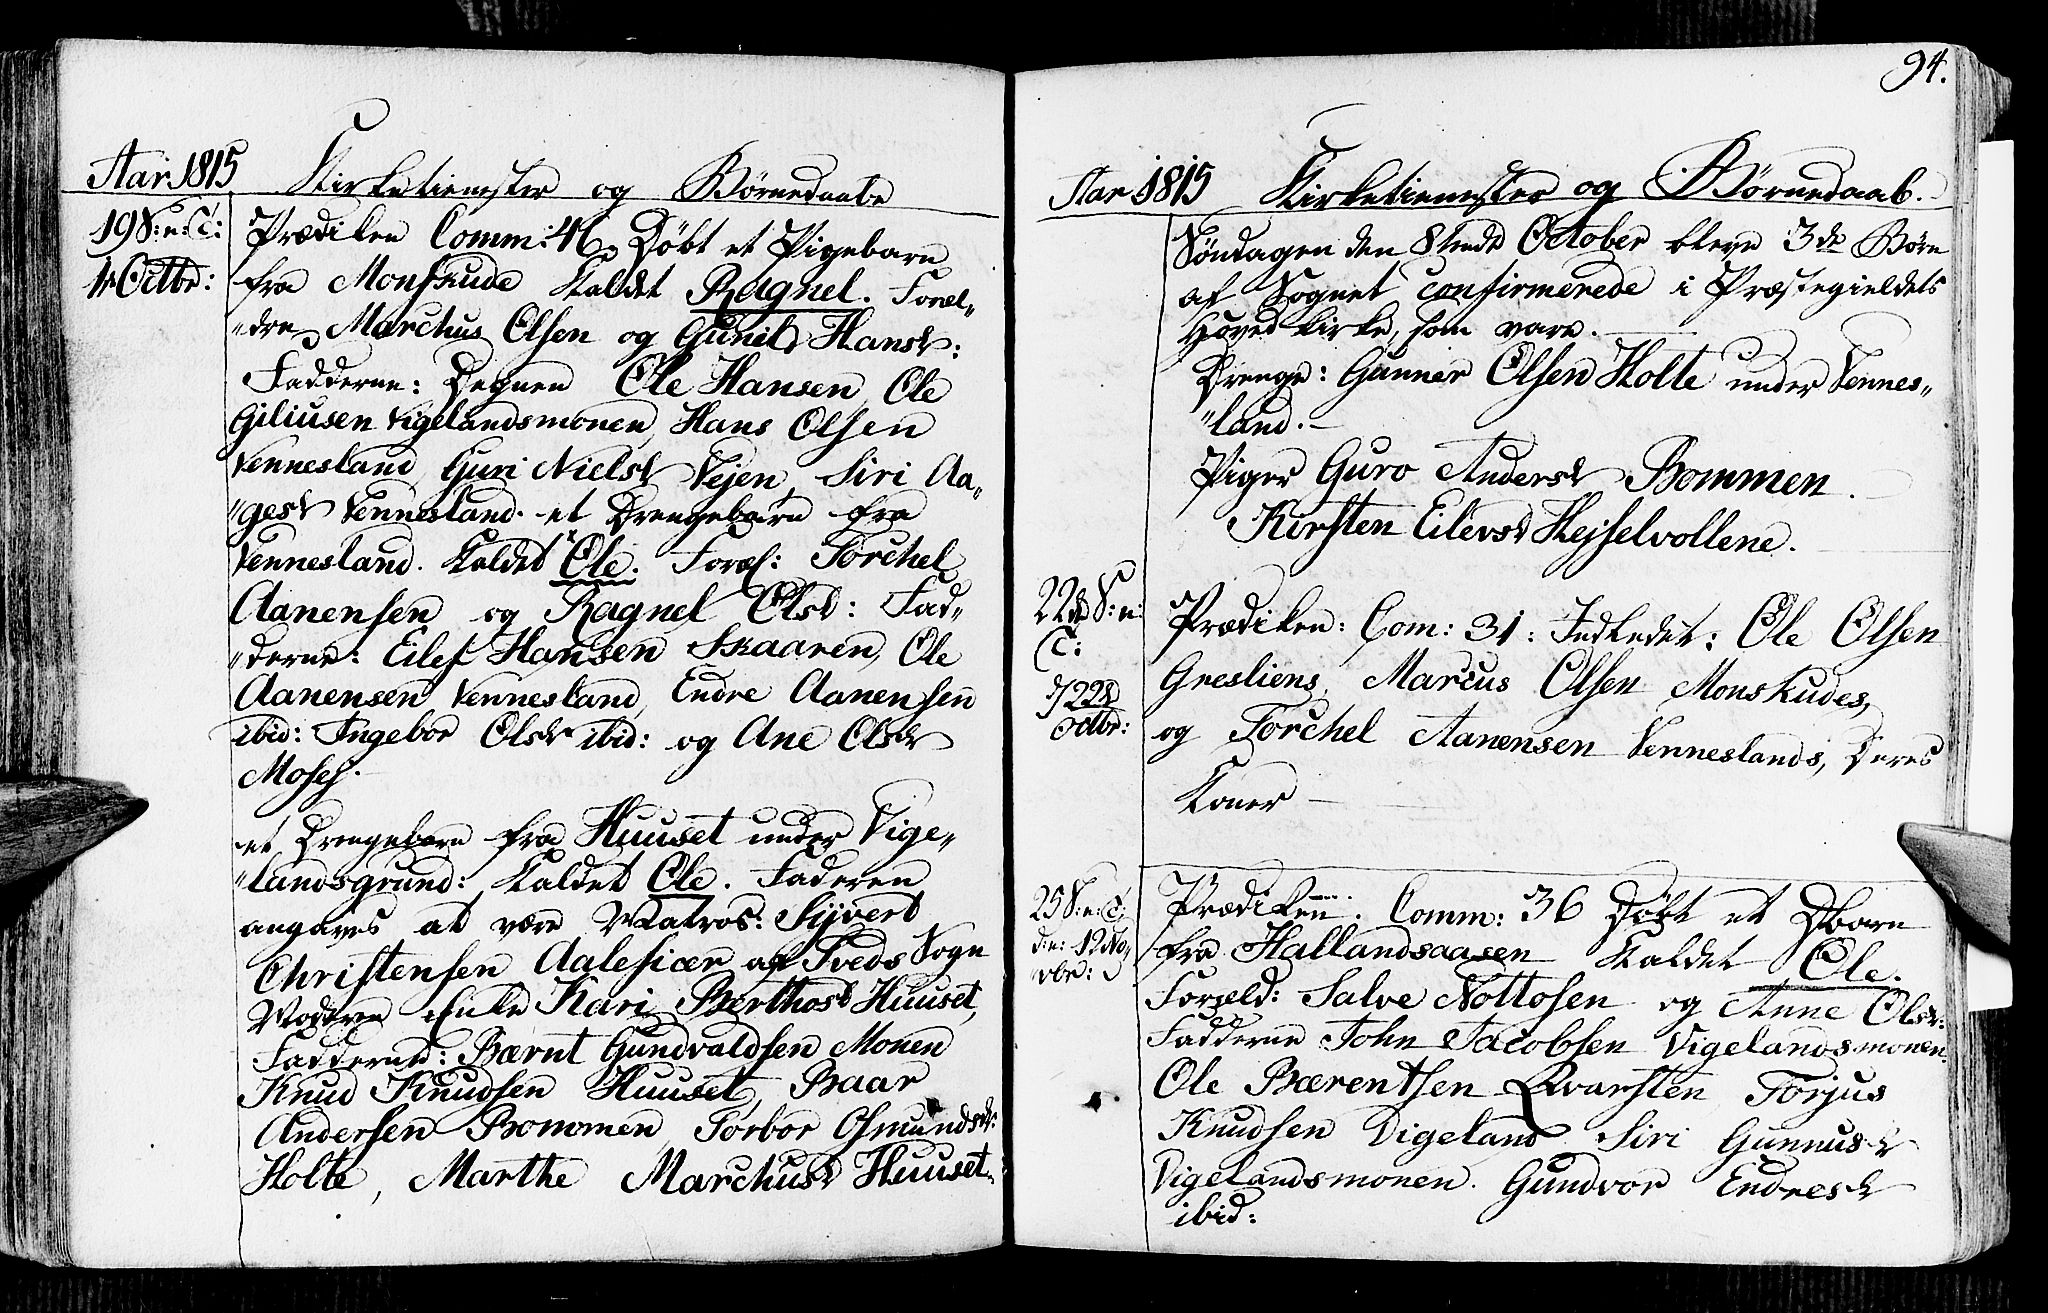 Aar 1815 Kirketienester og Børnedaabe
19 S: n: T: Prædiken Comm: 41. Døbt et Pigebarn
1te Octbr: fra Monskude kaldet Ragnel. Foræl-
"dre Marchus Olsen og Gunild Hansd:
Fadderne: Degnen Ole Hansen, Ole
Giliusen Vigelandsmonen, Hans Olsen
Vennesland, Guri Nielsd Vejen, Siri Aa-
"gesd Vennesland. et Drengebarn fra
Vennesland. kaldet Ole. Foræl: Torchel
Aanensen og Ragnel Olsd: Fad-
"derne: Eilef Hansen Skaaren, Ole
Aanensen Vennesland, Endre Aanensen
ibid: Ingebor Olsdr ibid: og Ane Olsdr
Moseh.
et Drengebarn fra Huuset under Vige-
"landsgrund: kaldet Ole. Faderen
angaves at være Matros: Sijvert
Christensen Aalefiær af Tveds Sogn
Moderen Enke Kari Berthosd Huuset,
Fadderne: Bærnt Gundvaldsen Monen
Knud Knudsen Huuset, Baar
Andersen Bommen, Torbor Osmundsdr:
Holte, Marthe Marchusd Huuset.
94.
Aar 1815 Kirketienester og Børnedaab.
Søndagen den 8tende October bleve 3de Børn
af Sognet confirmerede i Præstegieldets
Hovedkirke, som vare.
Drenge: Gunner Olsen Holte under Vennes-
"land.
Piger Guro Andersd Bommen.
Kirsten Eilevsd Hejselvollene.
22de S: n: T: Prædiken: Com: 31: Indledet: Ole Olsen
Gresliens, Marcus Olsen Monskudes,
22d Octbr: og Torchel Aanensen Venneslands, Deres
Koner
25 S: n: T: Prædiken. Comm: 36 Døbt et Dbarn
d: n: 12 No, fra Hallandsaasen kaldet Ole.
vbr: Foræld: Salve Nottosen og Anne Olsdr:
Fadderne John Jacobsen Vigelandsmonen.
Ole Bærentsen Qvarsten, Torjus
Knudsen Vigeland Siri Gunnusdr
Vigelandsmonen. Gundvor Endresdr
ibid: